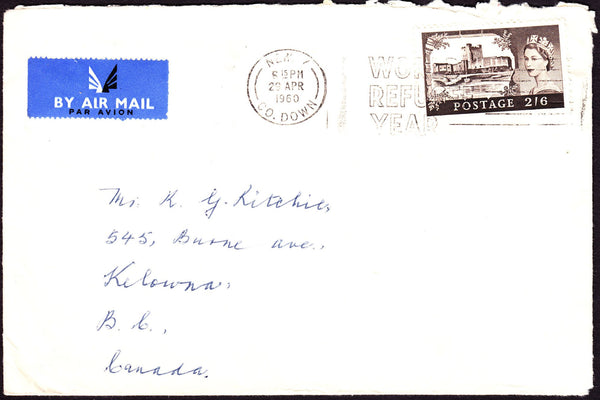 BY AIR MAIL
PAR AVION
NEWRY
6 15 PM
29 APR
1960
CO. DOWN
WOR
REFU
YEAR
POSTAGE 2/6
Mr. K. G. Kitchie,
545, Burne ave.,
Kelowna,
B. C.,
Canada.